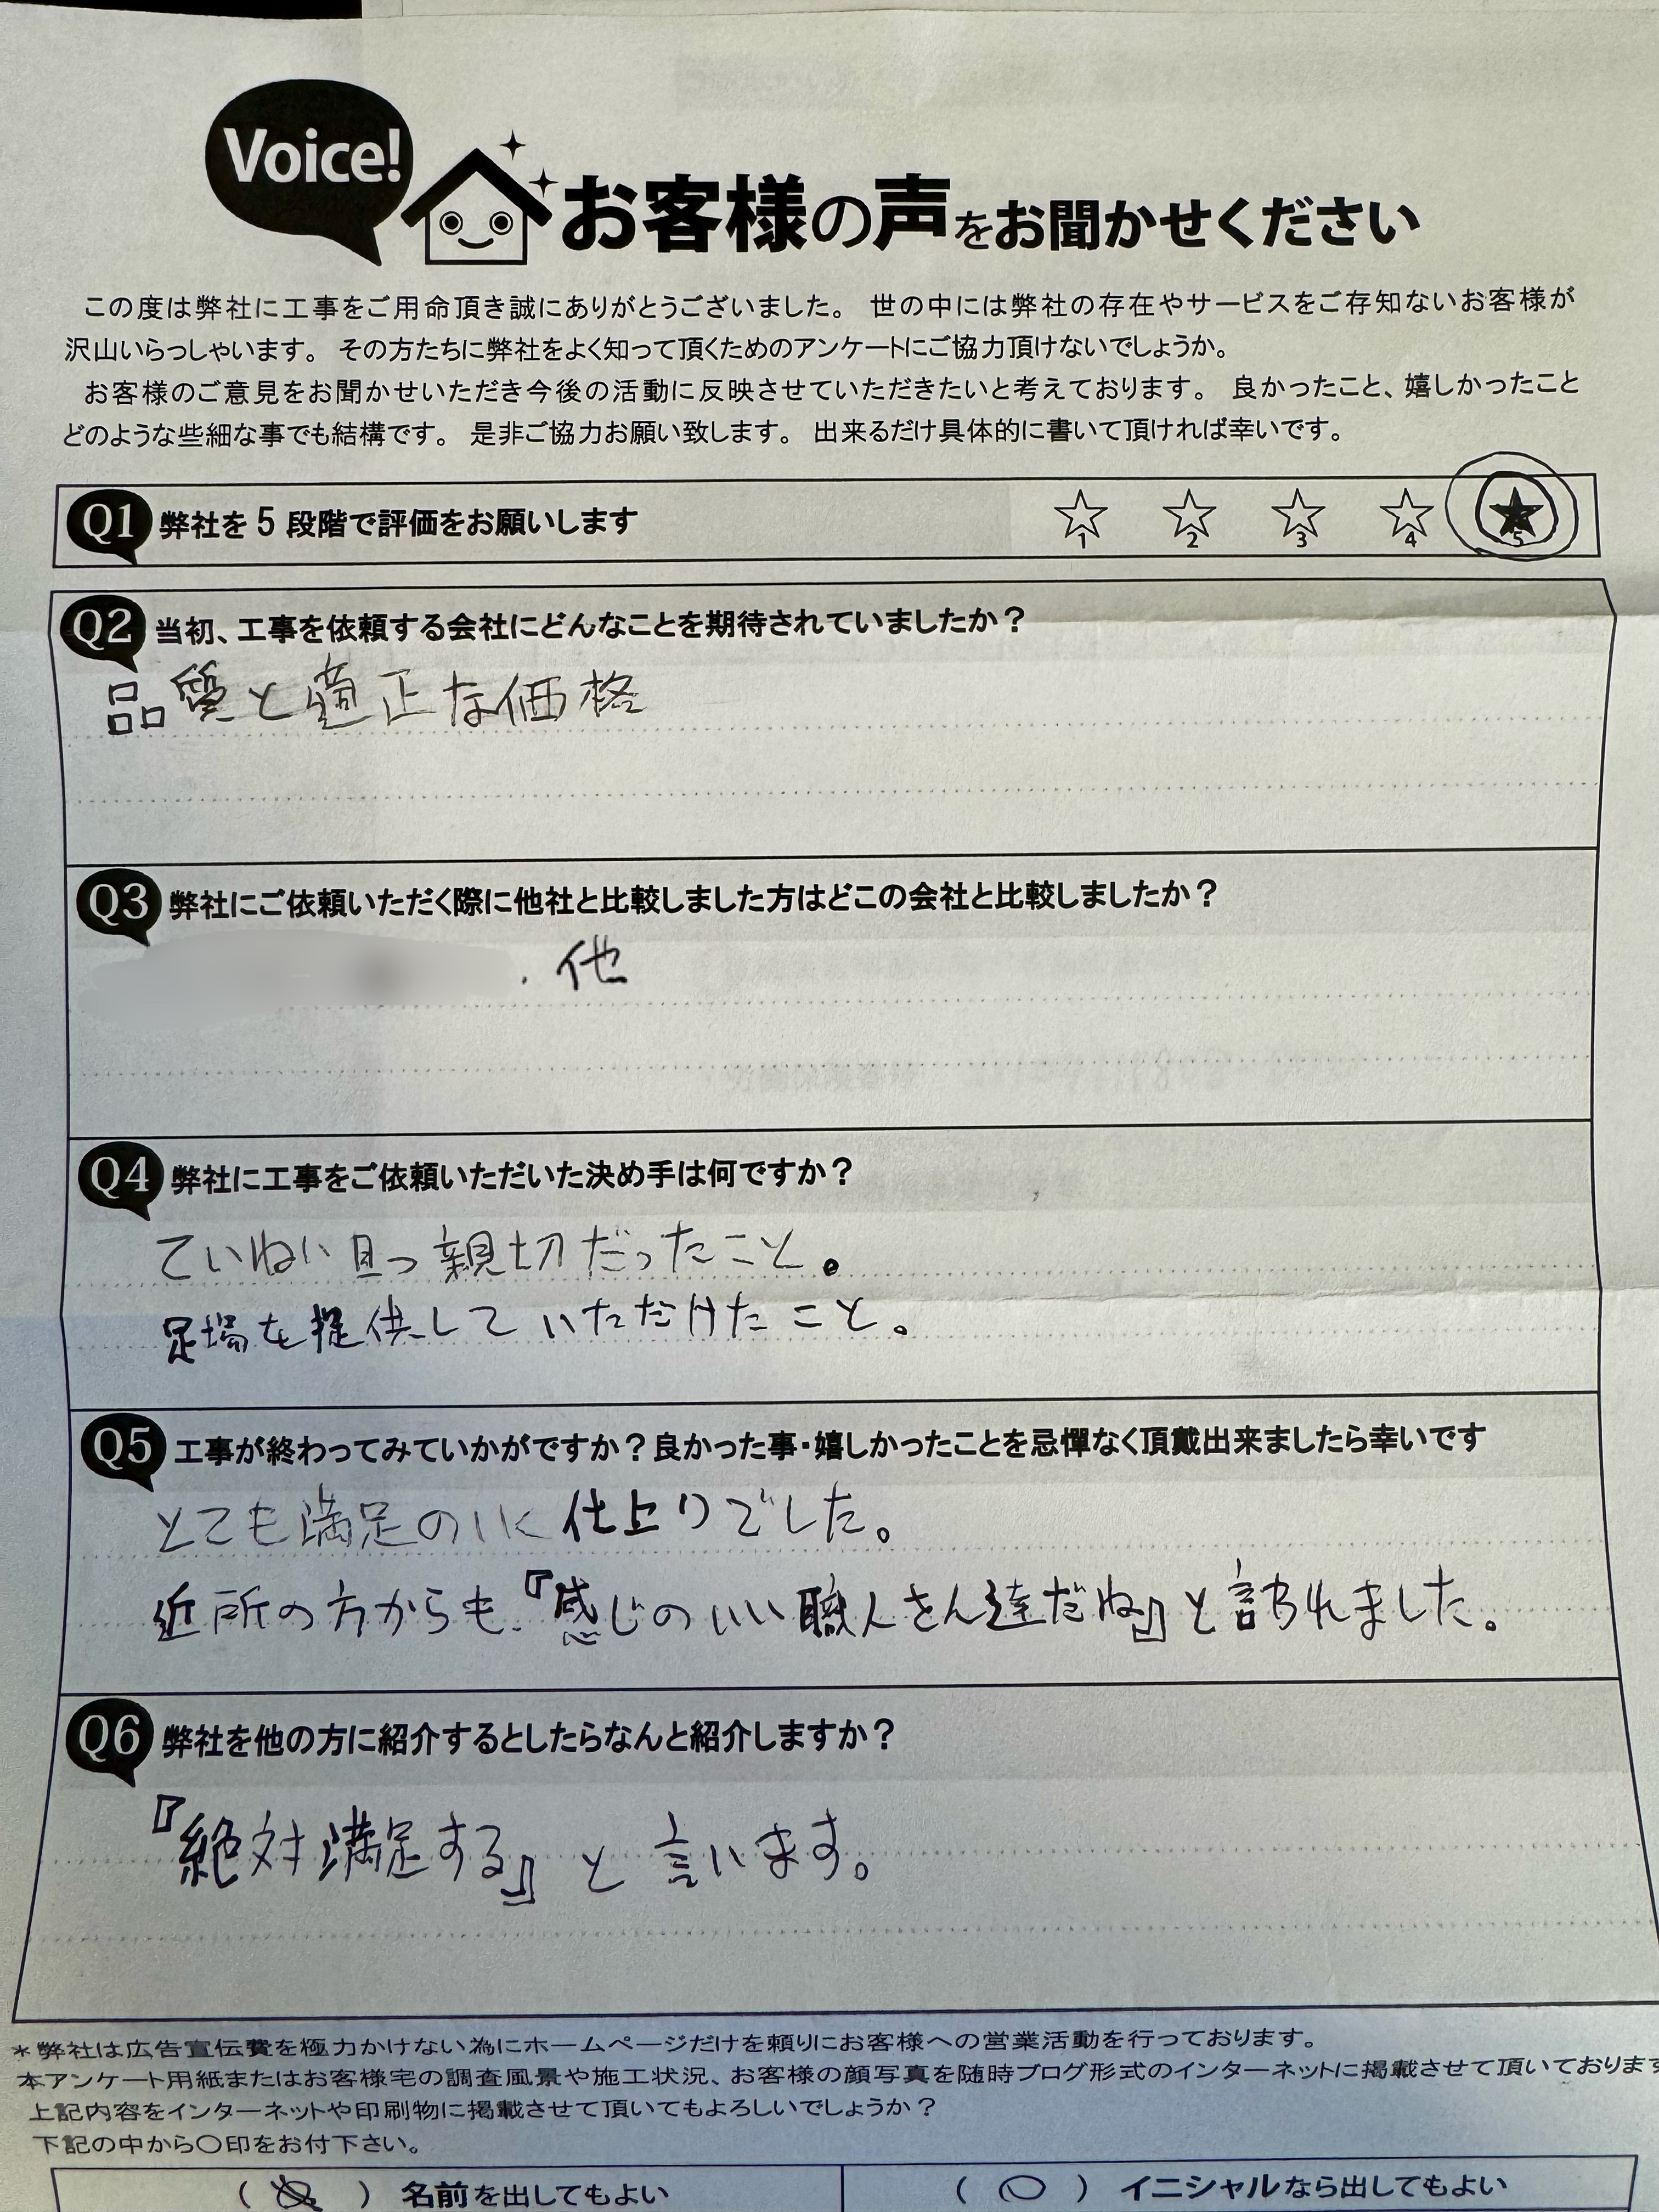 Voice!
お客様の声をお聞かせください
この度は弊社に工事をご用命頂き誠にありがとうございました。 世の中には弊社の存在やサービスをご存知ないお客様が
沢山いらっしゃいます。 その方たちに弊社をよく知って頂くためのアンケートにご協力頂けないでしょうか。
お客様のご意見をお聞かせいただき今後の活動に反映させていただきたいと考えております。 良かったこと、嬉しかったこと
どのような些細な事でも結構です。 是非ご協力お願い致します。 出来るだけ具体的に書いて頂ければ幸いです。
Q1 弊社を5段階で評価をお願いします ☆1 ☆2 ☆3 ☆4 ★5
Q2 当初、工事を依頼する会社にどんなことを期待されていましたか?
品質と適正な価格
Q3 弊社にご依頼いただく際に他社と比較しました方はどこの会社と比較しましたか?
. 他
Q4 弊社に工事をご依頼いただいた決め手は何ですか?
ていねい且つ親切だったこと。
足場を提供していただけたこと。
Q5 工事が終わってみていかがですか?良かった事・嬉しかったことを忌憚なく頂戴出来ましたら幸いです
とても満足のいく仕上りでした。
近所の方からも『感じのいい職人さん達だね』と言われました。
Q6 弊社を他の方に紹介するとしたらなんと紹介しますか?
『絶対満足する』と言います。
*弊社は広告宣伝費を極力かけない為にホームページだけを頼りにお客様への営業活動を行っております。
本アンケート用紙またはお客様宅の調査風景や施工状況、お客様の顔写真を随時ブログ形式のインターネットに掲載させて頂いております
上記内容をインターネットや印刷物に掲載させて頂いてもよろしいでしょうか?
下記の中から〇印をお付下さい。
( ) 名前を出してもよい ( 〇 ) イニシャルなら出してもよい